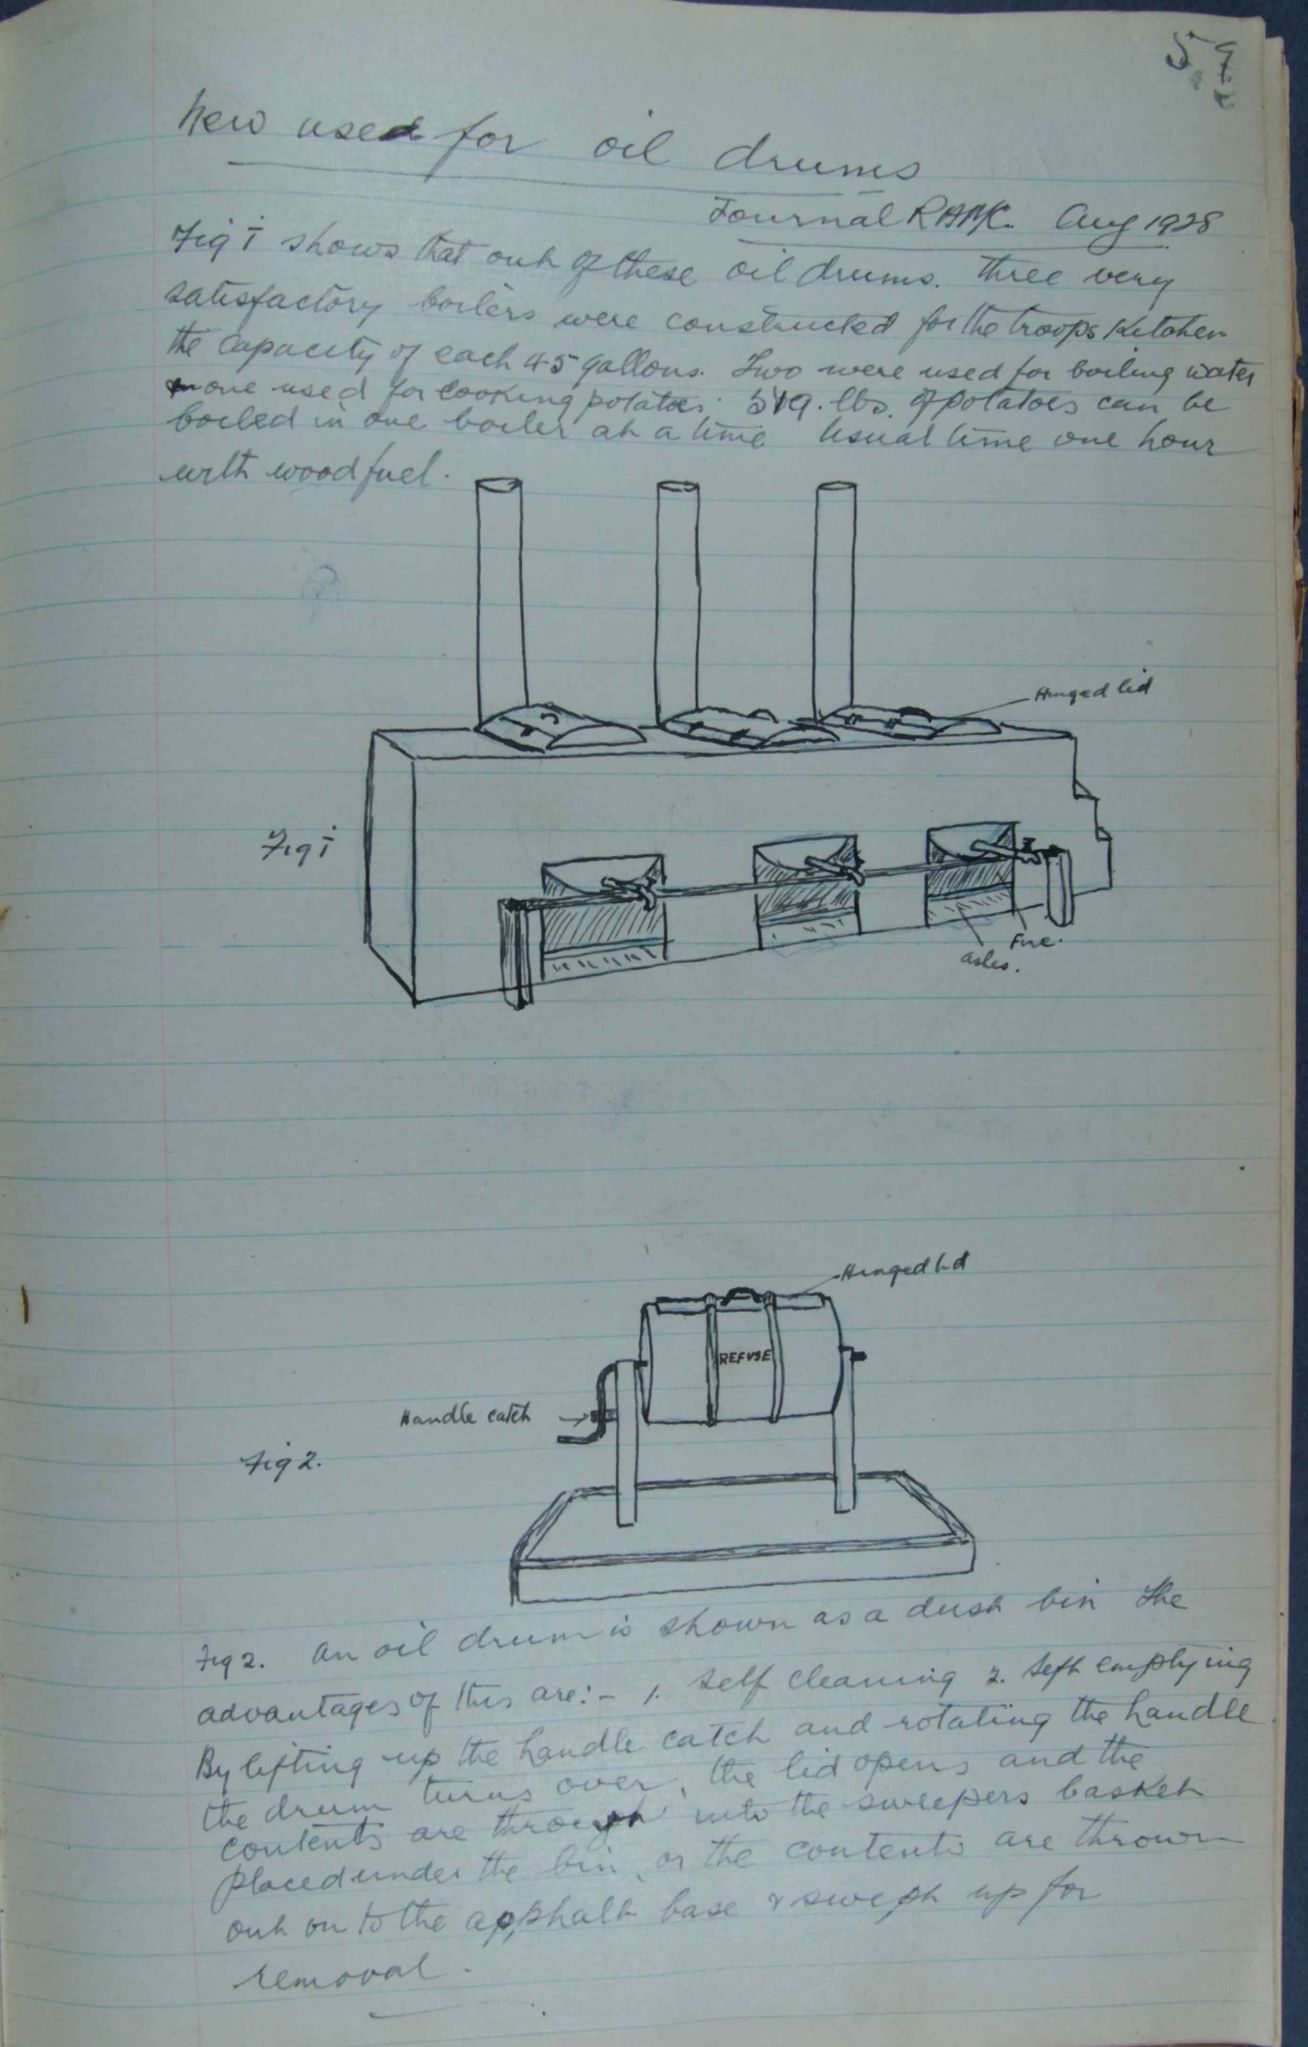 59
New used for oil drums
Journal RAMC. Aug 1928
Fig 1 shows that out of these oil drums. Three very
satisfactory boilers were constructed for the troops Kitchen
the capacity of each 45 gallons. Two were used for boiling water
one used for cooking potatoes. 519. lbs. of potatoes can be
boiled in one boiler at a time Usual time one hour
with wood fuel.
Hinged lid
Fig 1
Fire.
ashes.
Hinged lid
REFUSE
Handle catch
Fig 2.
Fig 2. An oil drum is shown as a dust bin The
advantages of this are:- 1. Self cleaning 2. Self emptying
By lifting up the handle catch and rotating the handle
the drum turns over, the lid opens and the
contents are through into the sweepers basket
placed under the bin, or the contents are thrown
out on to the apphalt base & swept up for
removal.